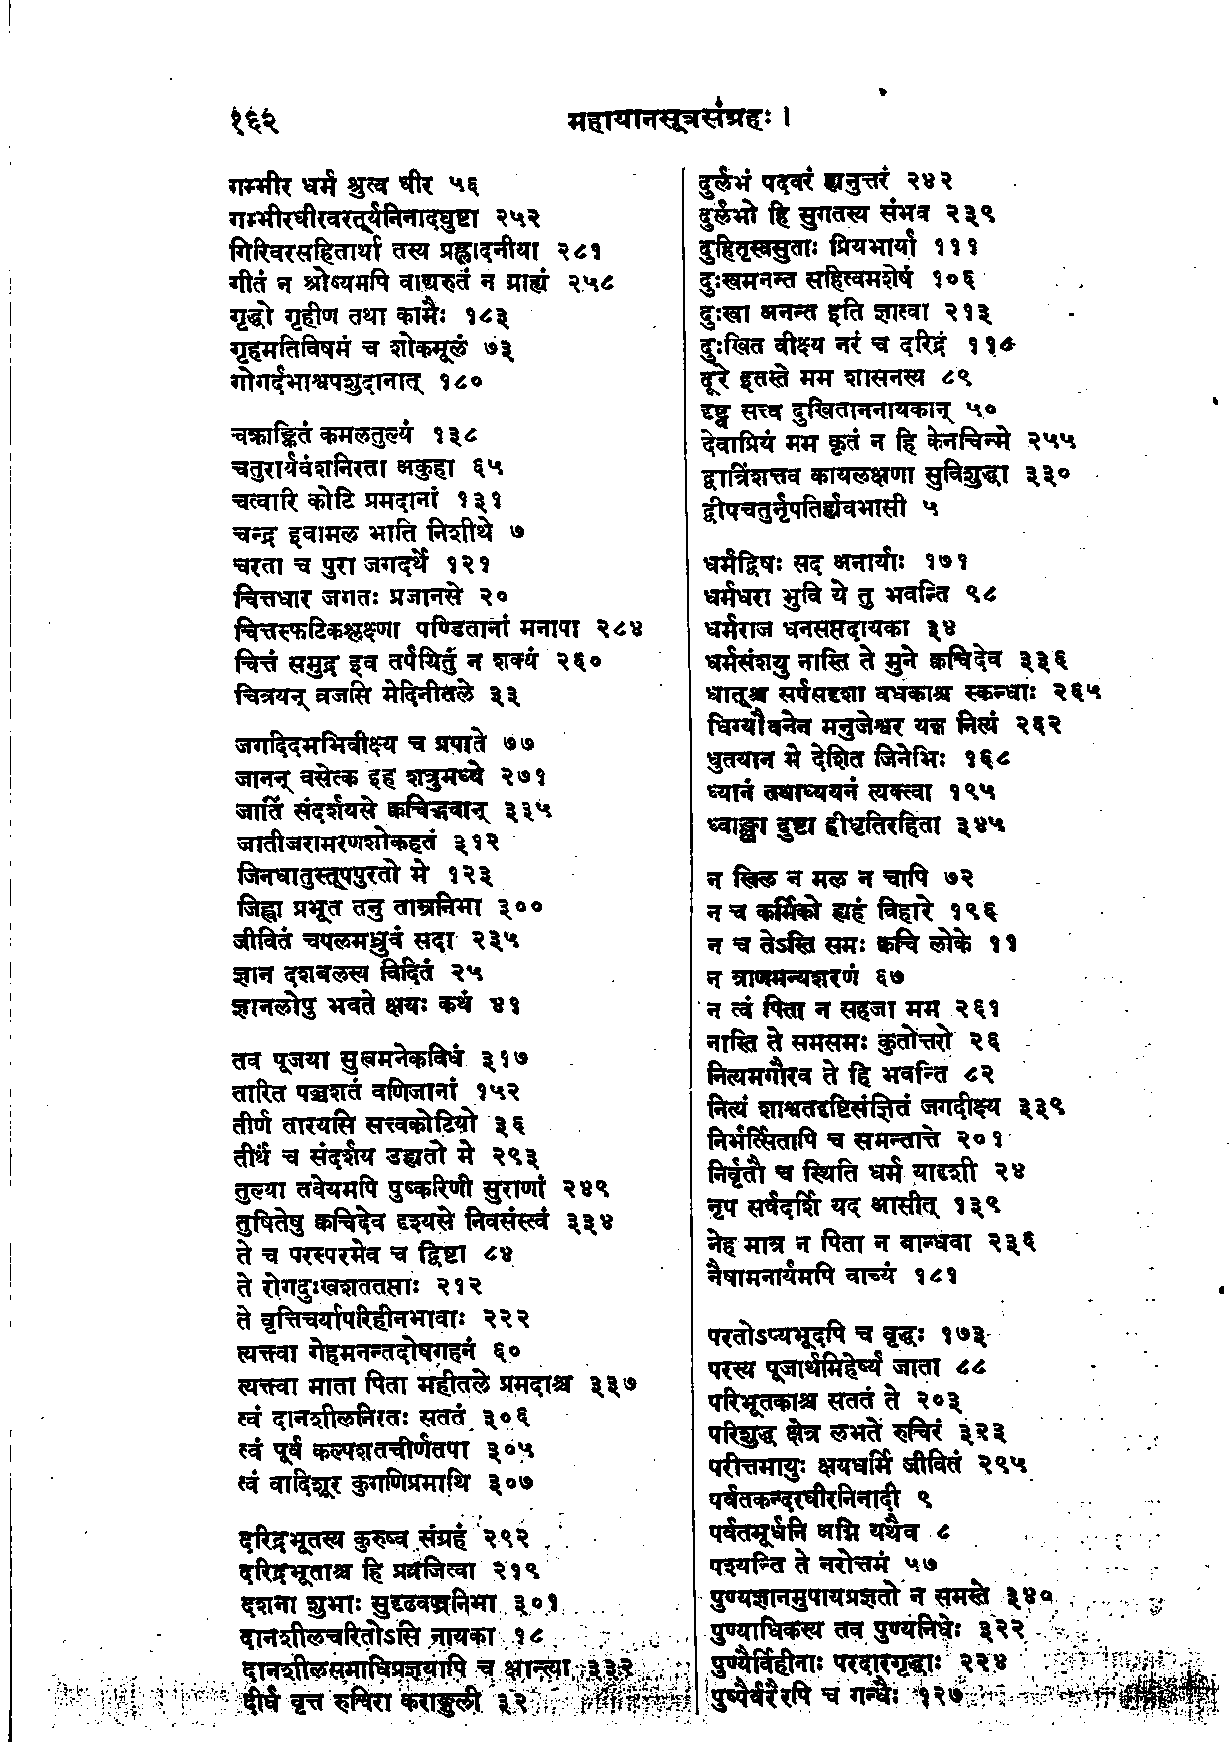 १६२
महायानसूत्रसंग्रहः ।
गम्भीर धर्म श्रुत्व धीर ५६
गम्भीरधीरवरतूर्यनिनादघुष्टा २५२
गिरिवरसहितार्था तस्य प्रह्लादनीया २८१
गीतं न श्रोष्यमपि वाद्यरुतं न ग्राह्यं २५८
गृद्धो गृहीण तथा कामैः १८३
गृहमतिविषमं च शोकमूलं ७३
गोगर्दभाश्वपशुदानात् १८०
चक्राङ्कितं कमलतुल्यं १३८
चतुरार्यवंशनिरता अकुहा ६५
चत्वारि कोटि प्रमदानां १३१
चन्द्र इवामल भाति निशीथे ७
चरता च पुरा जगदर्थे १२१
चित्तधार जगतः प्रजानसे २०
चित्तस्फटिकश्लक्ष्णा पण्डितानां मनापा २८४
चित्तं समुद्र इव तर्पयितुं न शक्यं २६०
चित्रयन् व्रजसि मेदिनीतले ३३
जगदिदमभिवीक्ष्य च प्रपाते ७७
जानन् वसेत्क इह शत्रुमध्ये २७१
जातिं संदर्शयसे क्वचिद्भवान् ३३५
जातीजरामरणशोकहतं ३१२
जिनधातुस्तूपपुरतो मे १२३
जिह्वा प्रभूत तनु ताम्रनिभा ३००
जीवितं चपलमध्रुवं सदा २३५
ज्ञान दशबलस्य विदितं २५
ज्ञानलोपु भवते क्षयः कथं ४१
तव पूजया सुखमनेकविधं ३१७
तारित पञ्चशतं वणिजानां १५२
तीर्ण तारयसि सत्त्वकोटियो ३६
तीर्थं च संदर्शय उह्यतो मे २९३
तुल्या तवेयमपि पुष्करिणी सुराणां २४९
तुषितेषु क्वचिदेव दृश्यसे निवसंस्त्वं ३३४
ते च परस्परमेव च द्विष्टा ८४
ते रोगदुःखशततप्ताः २१२
ते वृत्तिचर्यापरिहीनभावाः २२२
त्यक्त्वा गेहमनन्तदोषगहनं ६०
त्यक्त्वा माता पिता महीतले प्रमदाश्च ३३७
त्वं दानशीलनिरतः सततं ३०६
त्वं पूर्व कल्पशतचीर्णतपा ३०५
त्वं वादिशूर कुगणिप्रमाथि ३०७
दरिद्रभूतस्य कुरुष्व संग्रहं २९२
दरिद्रभूताश्च हि प्रव्रजित्वा २१९
दशना शुभाः सुदृढवज्रनिभा ३०१
दानशीलचरितोऽसि नायका १८
दानशीलसमाधिप्रज्ञयापि च क्षान्त्या ३३२
दीर्घ वृत्त रुचिरा कराङ्गुली ३२
दुर्लभं पदवरं ह्यनुत्तरं २४२
दुर्लभो हि सुगतस्य संभव २३९
दुहितृस्वसुताः प्रियभार्या १११
दुःखमनन्त सहित्वमशेषं १०६
दुःखा अनन्त इति ज्ञात्वा २१३
दुःखित वीक्ष्य नरं च दरिद्रं ११८
दूरे इतस्ते मम शासनस्य ८९
दृष्ट्व सत्त्व दुखिताननायकान् ५०
देवाप्रियं मम कृतं न हि केनचिन्मे २५५
द्वात्रिंशत्तव कायलक्षणा सुविशुद्धा ३३०
द्वीपचतुर्नृपतिर्ह्यवभासी ५
धर्मद्विषः सद अनार्याः १७१
धर्मधरा भुवि ये तु भवन्ति ९८
धर्मराज धनसप्तदायका ३४
धर्मसंशयु नास्ति ते मुने क्वचिदेव ३३६
धातूश्च सर्पसदृशा वधकाश्च स्कन्धाः २६५
धिग्यौवनेन मनुजेश्वर यन्न नित्यं २६२
धुतयान मे देशित जिनेभिः १६८
ध्यानं तथाध्ययनं त्यक्त्वा १९५
ध्वाङ्क्षा दुष्टा ह्रीधृतिरहिता ३४५
न खिल न मल न चापि ७२
न च कर्मिको ह्यहं विहारे १९६
न च तेऽस्ति समः क्वचि लोके ११
न त्राणमन्यशरणं ६७
न त्वं पिता न सहजा मम २६१
नास्ति ते समसमः कुतोत्तरो २६
नित्यमगौरव ते हि भवन्ति ८२
नित्यं शाश्वतदृष्टिसंज्ञितं जगदीक्ष्य ३३९
निर्भर्त्सितापि च समन्तात्ते २०१
निर्वृतौ च स्थिति धर्म यादृशी २४
नृप सर्वदर्शि यद आसीत् १३९
नेह मात्र न पिता न बान्धवा २३६
नैषामनार्यमपि वाच्यं १८१
परतोऽप्यभूदपि च वृद्धः १७३
परस्य पूजार्थमिहेर्ष्यं जाता ८८
परिभूतकाश्च सततं ते २०३
परिशुद्ध क्षेत्र लभते रुचिरं ३२३
परीत्तमायुः क्षयधर्मि जीवितं २९५
पर्वतकन्दरधीरनिनादी ९
पर्वतमूर्धनि अग्नि यथैव ८
पश्यन्ति ते नरोत्तमं ५७
पुण्यज्ञानमुपायप्रज्ञतो न समस्ते ३४०
पुण्याधिकस्य तव पुण्यनिधेः ३२२
पुण्यैर्विहीनाः परदारगृद्धाः २२४
पुष्पैर्वरैरपि च गन्धैः १२७